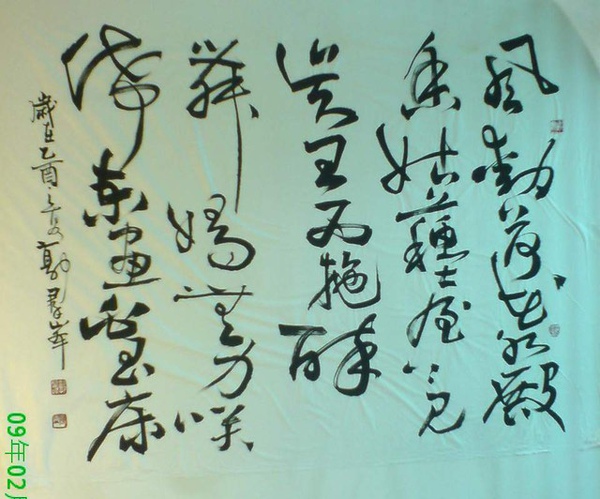 風動荷花水殿
香姑蘇臺上見
吴王西施醉
舞嬌無力咲
倚東窗白玉床
歲在乙酉之夏
09年02